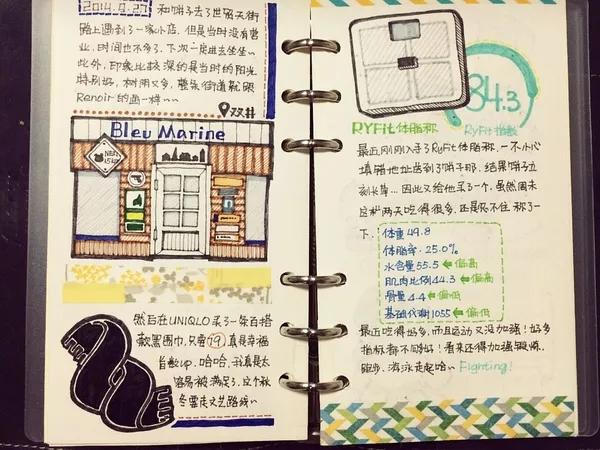 2014.9.27 和饼子去了世贸天街
路上遇到了一家小店，但是当时没有营
业，时间也不多了，下次一定进去坐坐～
此外，印象比较深的是当时的阳光
特别好，树阴又多，整条街道就跟
Renoir的画一样～～
双井
Bleu Marine
然后在UNIQLO买了一条百搭
款围巾，只要79，真是幸福
指数up，哈哈，我真是太
容易被满足了，这个秋
冬要走文艺路线～
84.3
RyFit指数
RYFit体脂秤
最近刚刚入手了RyFit体脂秤，一不小心
填错地址寄到了饼子那，结果饼子立
刻长草…因此又给他买了一个，虽然周末
这两天吃得很多，还是忍不住称了一
下.
体重49.8
体脂率.25.0%
水含量55.5←偏高
肌肉比例44.3←偏高
骨量4.4←偏低
基础代谢1055←偏低
最近吃得好多，而且运动又没加强！好多
指标都不同好！看来还得加强锻炼.
跑步、游泳走起哈～Fighting！